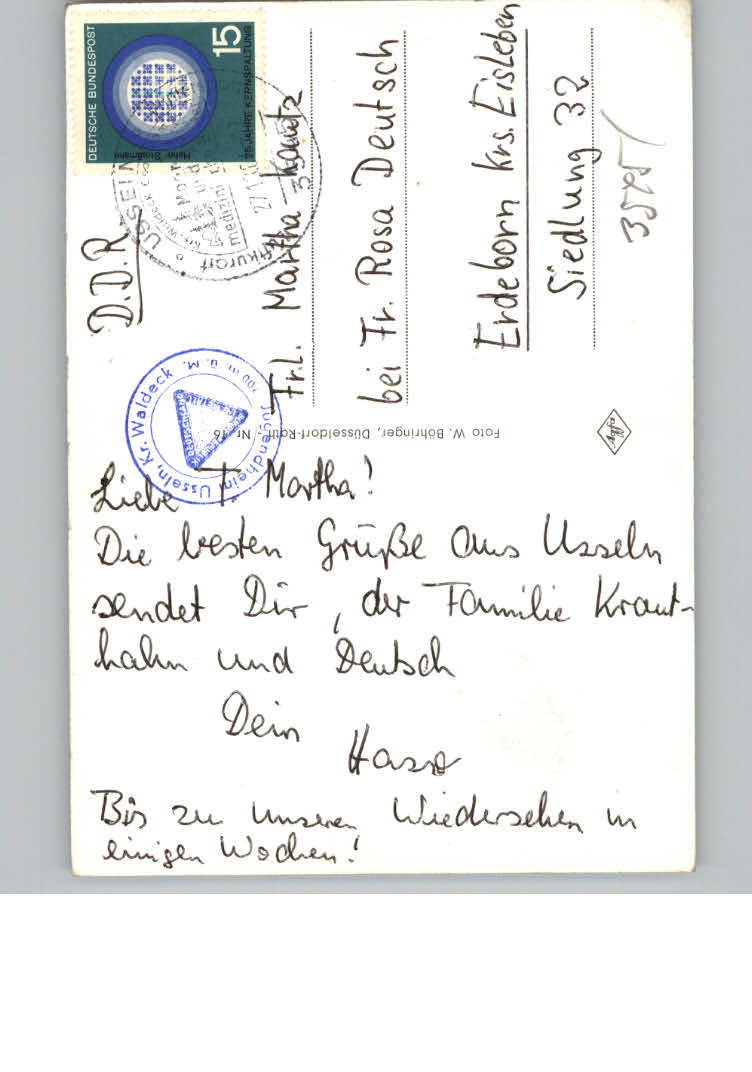 Liebe T. Martha!
Die besten Grüße aus Usseln
sendet Dir, der Familie Kraut-
hahn und Deutsch
Dein
Bis zu unseren Wiedersehen in
einigen Wochen!
D.D.R
Frl. Martha
bei Fr. Rosa Deutsch
Erdeborn Krs. Eisleben
Siedlung 32
DEUTSCHE BUNDESPOST
15
25 JAHRE KERNSPALTUNG
Hahn Straßmann
Jugendheim Usseln, Kr. Waldeck
700 m. ü. M.
Foto W. Böhringer, Düsseldorf-Rath, Nr. 16
Agfa